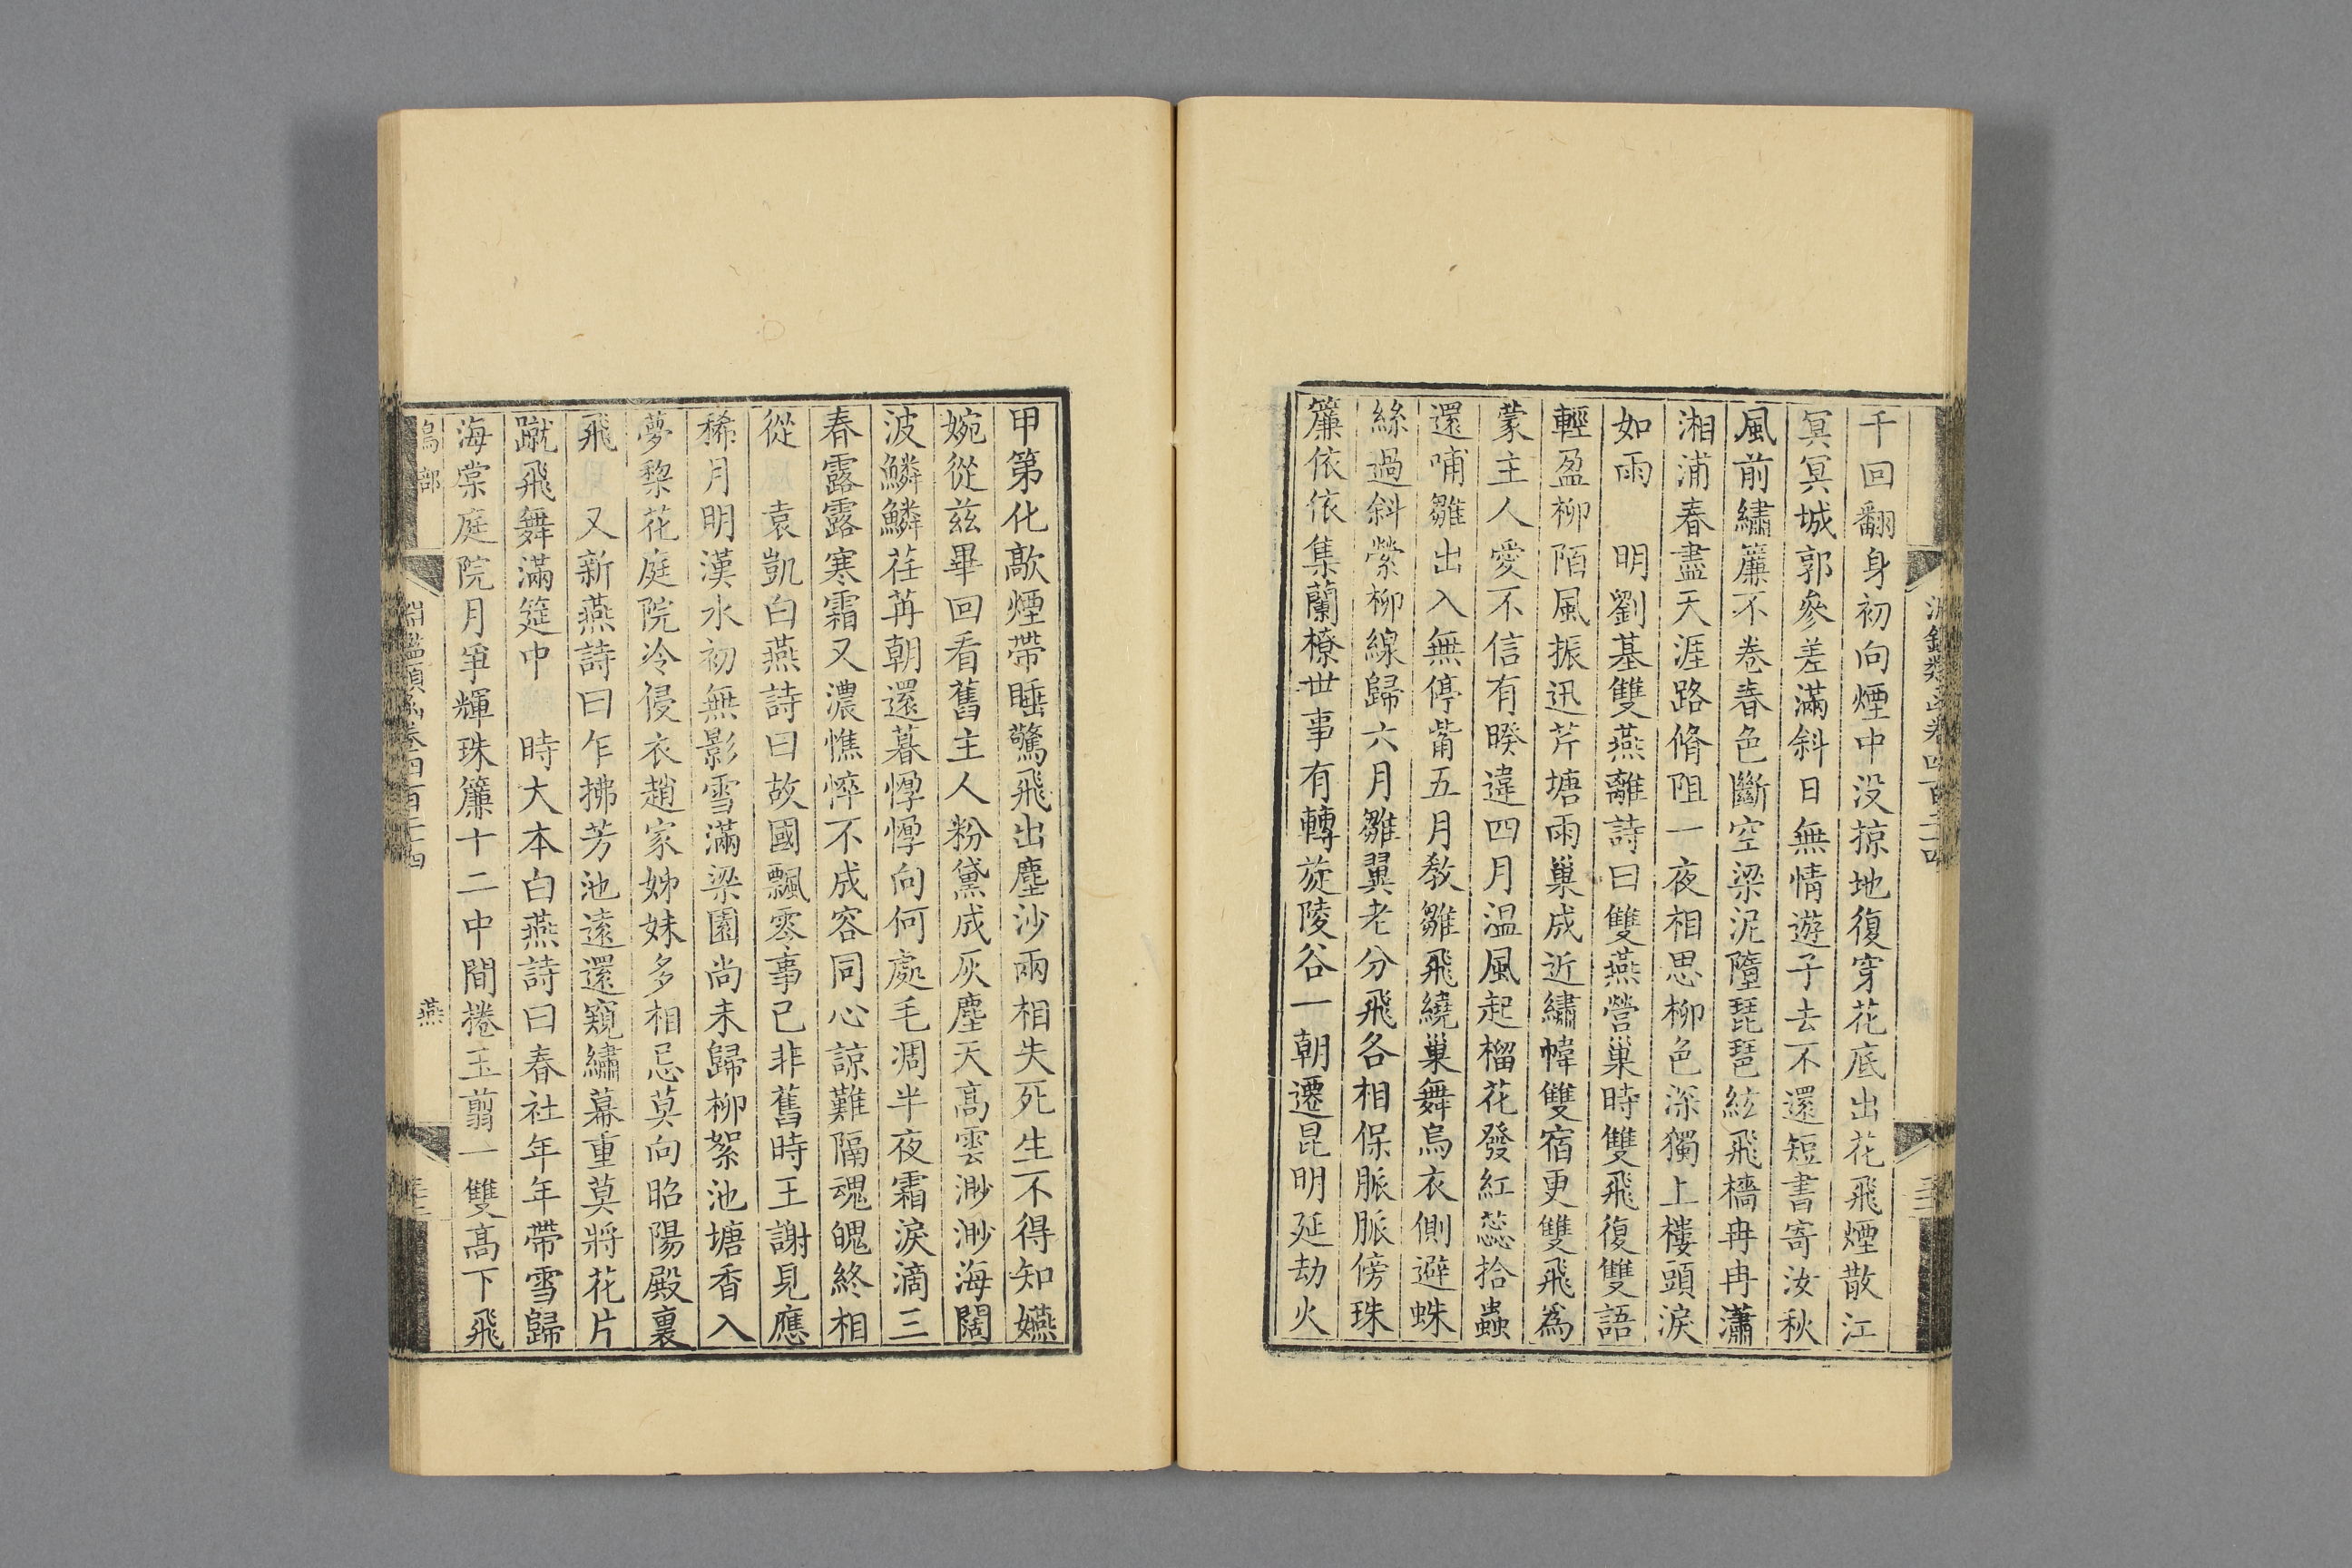 千回翻身初向煙中没掠地復穿花底出花飛煙散江
冥冥城郭參差滿斜日無情遊子去不還短書寄汝秋
風前繡簾不卷春色斷空梁泥墮琵琶絃飛檣冉冉瀟
湘浦春盡天涯路脩阻一夜相思柳色深獨上樓頭淚
如雨　明劉基雙燕離詩曰雙燕營巢時雙飛復雙語
輕盈柳陌風振迅芹塘雨巢成近繡幃雙宿更雙飛為
蒙主人愛不信有暌違四月溫風起榴花發紅蕊拾蟲
還哺雛出入無停觜五月教雛飛繞巢舞烏衣側避蛛
絲過斜縈柳線歸六月雛翼老分飛各相保脈脈傍珠
簾依依集蘭橑世事有轉旋陵谷一朝遷昆明延劫火
甲第化歊煙帶睡驚飛出塵沙兩相失死生不得知嬿
婉從茲畢回看舊主人粉黛成灰塵天高雲渺渺海闊
波鱗鱗荏苒朝還暮惸惸向何處毛凋半夜霜淚滴三
春露露寒霜又濃憔悴不成容同心諒難隔魂魄終相
從　袁凱白燕詩曰故國飄零事已非舊時王謝見應
稀月明漢水初無影雪滿梁園尚未歸柳絮池塘香入
夢黎花庭院冷侵衣趙家姊妹多相忌莫向昭陽殿裏
飛　又新燕詩曰乍拂芳池遠還窺繡幕重莫將花片
蹴飛舞滿筵中　時大本白燕詩曰春社年年帶雪歸
海棠庭院月爭輝珠簾十二中間捲玉翦一雙高下飛
鳥部
淵鑑類函卷四百二十四
燕